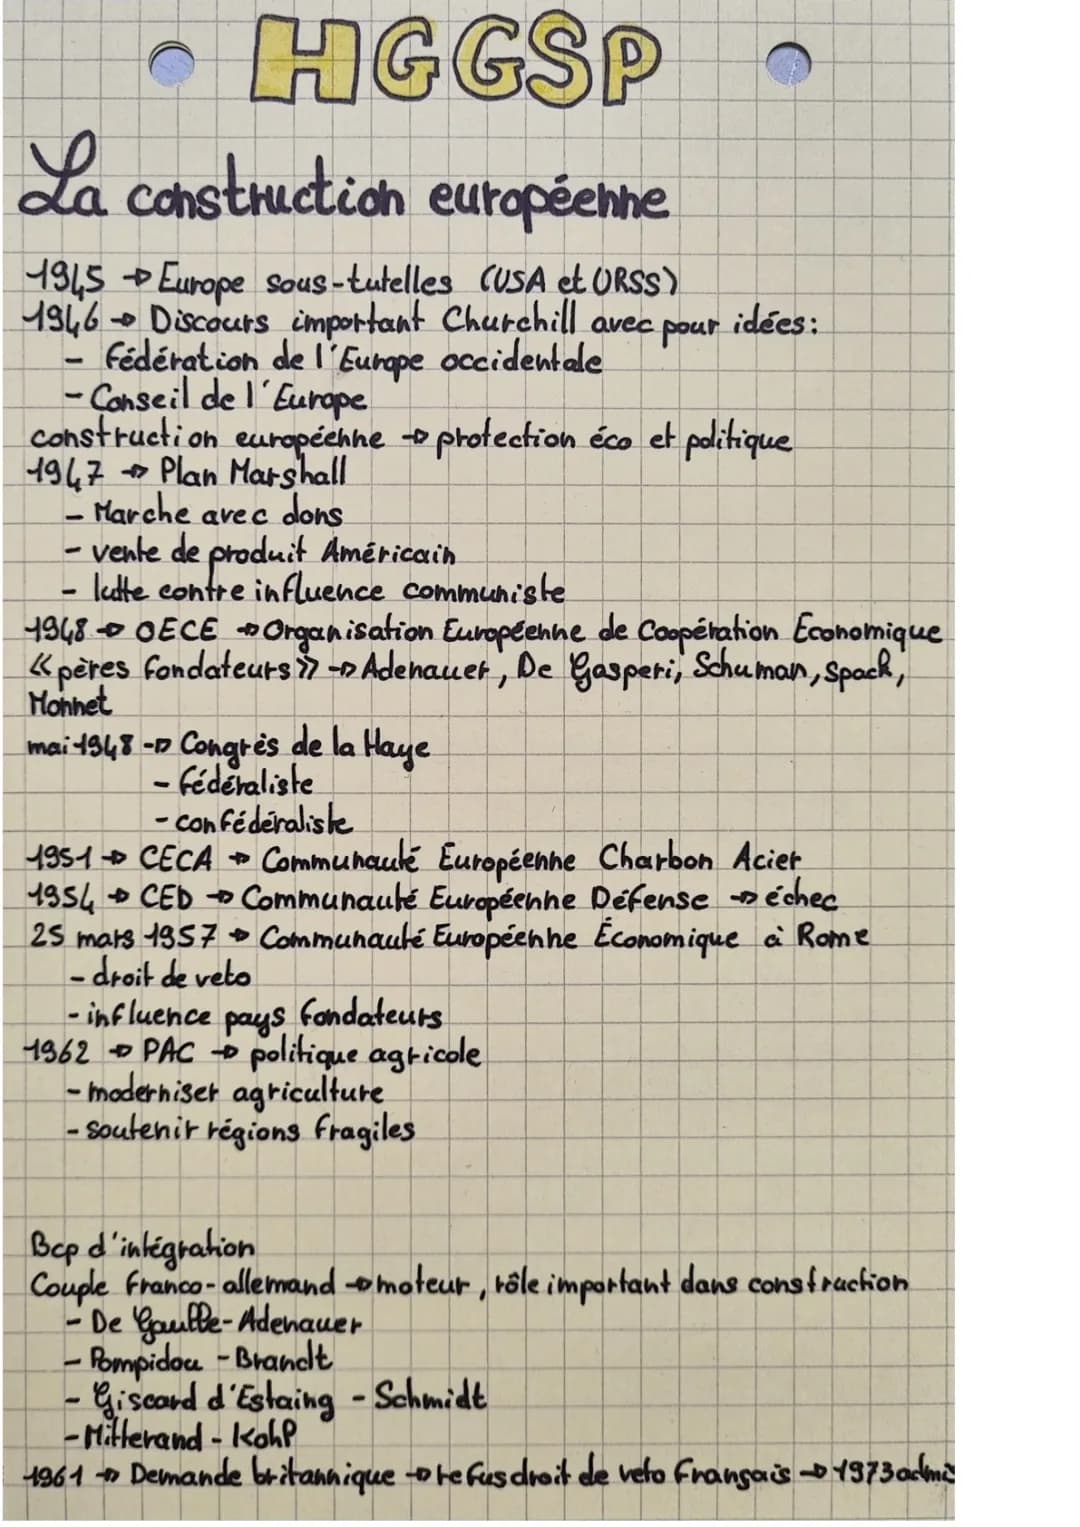 HGGSP
La construction européenne
1945 → Europe sous-tutelles (USA et URSS)
1946 → Discours important Churchill avec pour idées:
- Fédération de l'Europe occidentale
- Conseil de l'Europe
construction européenne → protection éco et politique
1947 → Plan Marshall
- Marche avec dons
- vente de produit Américain
- lutte contre influence communiste
1948 → OECE → Organisation Européenne de Coopération Economique
« pères fondateurs » → Adenauer, De Gasperi, Schuman, Spack,
Monnet
mai 1948 → Congrès de la Haye
- fédéraliste
- confédéraliste
1951 → CECA → Communauté Européenne Charbon Acier
1954 → CED → Communauté Européenne Défense → échec
25 mars 1957 → Communauté Européenne Économique à Rome
- droit de veto
- influence pays fondateurs
1962 → PAC → politique agricole
- moderniser agriculture
- soutenir régions fragiles
Bcp d'intégration
Couple franco-allemand → moteur, rôle important dans construction
- De Gaulle - Adenauer
- Pompidou - Brandt
- Giscard d'Estaing - Schmidt
- Mitterand - Kohl
1961 → Demande britannique → refus droit de veto Français → 1973 admis